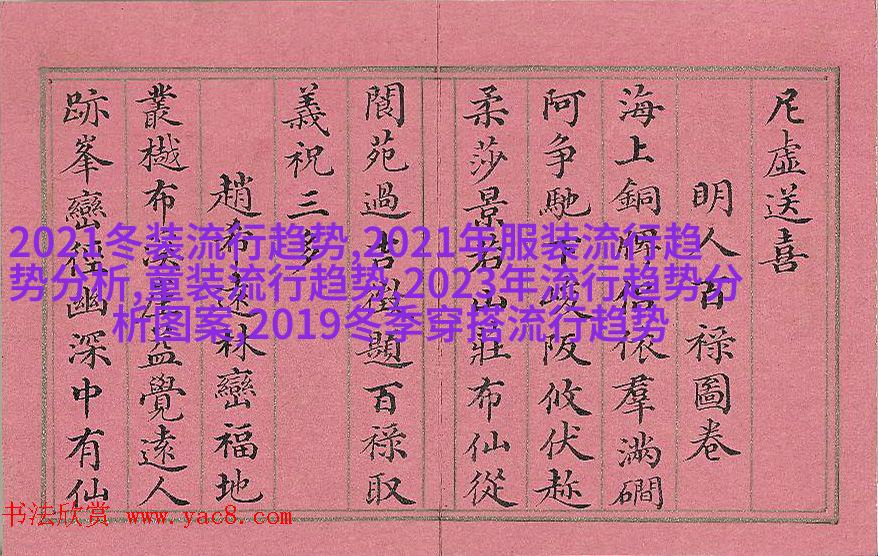 尼虛送喜
明人百祿圖卷
海上銅信依羣滿磵
阿争馳下峻阪攸伏
柔莎景若山莊布仙從
閬苑過題百祿取
義祝三多
趙希遠林巒福地
叢樾布益覺遠人
跡峯巒徑幽深中有仙
2021冬装流行趋势,2021年服装流行趋
势分析,童装流行趋势,2023年流行趋势分
析图案,2019冬季穿搭流行趋势
书法欣赏 www.yac8.com